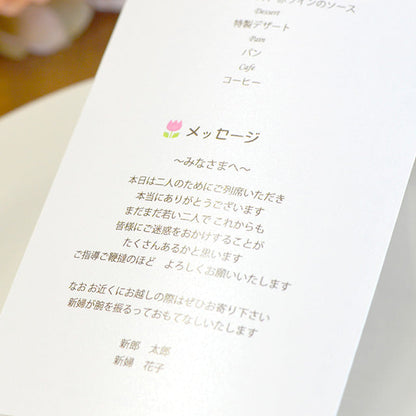 赤ワインのソース
Dessert
特製デザート
Pain
パン
Café
コーヒー
メッセージ
〜みなさまへ〜
本日は二人のためにご列席いただき
本当にありがとうございます
まだまだ若い二人で これからも
皆様にご迷惑をおかけすることが
たくさんあるかと思います
ご指導ご鞭撻のほど よろしくお願いいたします
なお お近くにお越しの際はぜひお寄り下さい
新婦が腕を振るっておもてなしいたします
新郎 太郎
新婦 花子